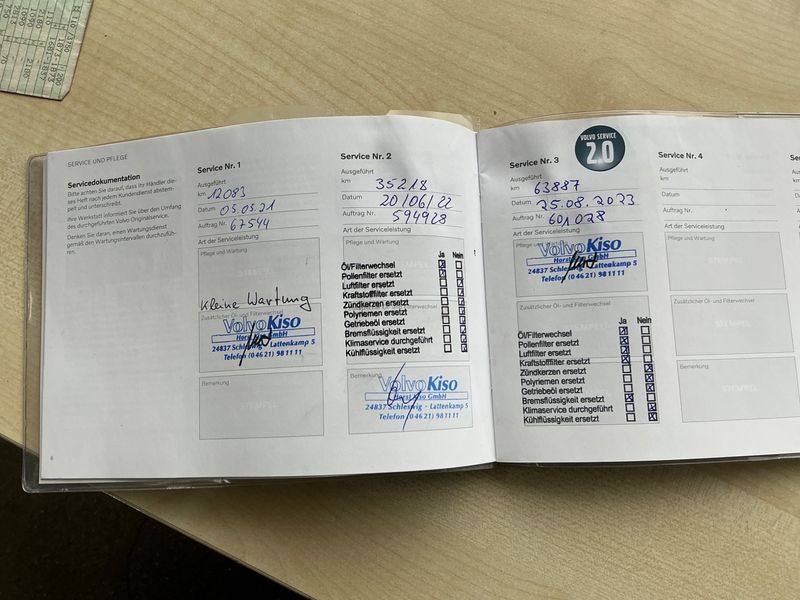 SERVICE UND PFLEGE
Servicedokumentation
Bitte achten Sie darauf, dass Ihr Händler die-
ses Heft nach jedem Kundendienst abstem-
pelt und unterschreibt.
Ihre Werkstatt informiert Sie über den Umfang
des durchgeführten Volvo Originalservice.
Denken Sie daran, einen Wartungsdienst
gemäß den Wartungsintervallen durchzufüh-
ren.
6
Service Nr. 1
Ausgeführt
km 12083
Datum 05.05.21
Auftrag Nr. 67544
Art der Serviceleistung
Pflege und Wartung
Kleine Wartung
Zusätzlicher Öl- und Filterwechsel
Volvo Kiso
Horst Kiso GmbH
24837 Schleswig - Lattenkamp 5
Telefon (0 46 21) 98 11 11
Bemerkung
Service Nr. 2
Ausgeführt
km 35218
Datum 20/06/22
Auftrag Nr. 594928
Art der Serviceleistung
Pflege und Wartung
Ja Nein
Öl/Filterwechsel
Pollenfilter ersetzt
Luftfilter ersetzt
Kraftstofffilter ersetzt
Zündkerzen ersetzt
Polyriemen ersetzt
Getriebeöl ersetzt
Bremsflüssigkeit ersetzt
Klimaservice durchgeführt
Kühlflüssigkeit ersetzt
Bemerkung
Volvo Kiso
Horst Kiso GmbH
24837 Schleswig - Lattenkamp 5
Telefon (0 46 21) 98 11 11
Service Nr. 3
VOLVO SERVICE
2.0
Ausgeführt
km 63887
Datum 25.08.2023
Auftrag Nr. 601028
Art der Serviceleistung
Pflege und Wartung
Volvo Kiso
Horst Kiso GmbH
24837 Schleswig - Lattenkamp 5
Telefon (0 46 21) 98 11 11
Zusätzlicher Öl- und Filterwechsel
Ja Nein
Öl/Filterwechsel
Pollenfilter ersetzt
Luftfilter ersetzt
Kraftstofffilter ersetzt
Zündkerzen ersetzt
Polyriemen ersetzt
Getriebeöl ersetzt
Bremsflüssigkeit ersetzt
Klimaservice durchgeführt
Kühlflüssigkeit ersetzt
Service Nr. 4
Ausgeführt
km
Datum
Auftrag Nr.
Art der Serviceleistung
Pflege und Wartung
STEMPEL
Zusätzlicher Öl- und Filterwechsel
STEMPEL
Bemerkung
STEMPEL